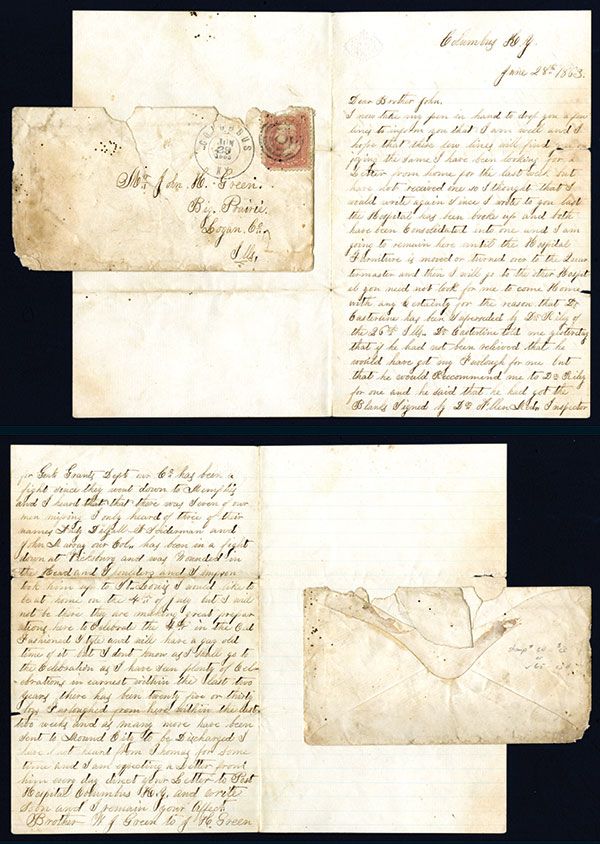 Columbus K.Y.
June 28th 1863.
Dear Brother John.
I now take my pen in hand to drop you a few
lines to inform you that I am well and I
hope that these few lines will find you en
joying the same I have been looking for a
Letter from home for the last week but
have not received one so I thought that I
would write again Since I wrote to you last
the Hospital has been broke up and both
have been Consolidated into one and I am
going to remain here until the Hospital
Furniture is moved or turned over to the Quar
termaster and then I will go to the other Hospit
al you need not look for me to come Home
with any certainty for the reason that Dr
Easterline has been Superseded by Dr Kily of
the 26th Ills. Dr Easterline told me yesterday
that if he had not been relieved that he
would have got my Furlough for me but
that he would Recommend me to Dr Kily
for one and he said that he had got the
Blanks Signed by Dr Allen Inspector
COLUMBUS
JUN
29
1863
KY
Mr John H. Green.
Big Prairie.
Logan Co.
Ills.
for Genl Grants Dept our Co has been a
fight since they went down to Memphis
and I heard that that there was Seven of our
men missing I only heard of three of their
names and
John Murray our Col. has been in a fight
down at Vicksburg and was Wounded in
the Head and Shoulders and
took him up to St. Louis I would like to
be at home on the 4th of July but I will
not be there they are making great prepar
ations here to Celebrate the 4th in the Old
Fashioned Style and will have a gay old
time of it but I dont know as I shall go to
the Celebration as I have Seen plenty of Cel-
ebrations in earnest within the last two
years, there has been twenty five or thirty
Furloughed from here within the last
two weeks and as many more have been
Sent to Mound City to be Discharged I
have not heard from Thomas for Some
time and I am expecting a Letter from
him every day direct your Letter to Post
Hospital Columbus K.Y. and write
Soon and I remain your Affect.
Brother W J Green to J H Green